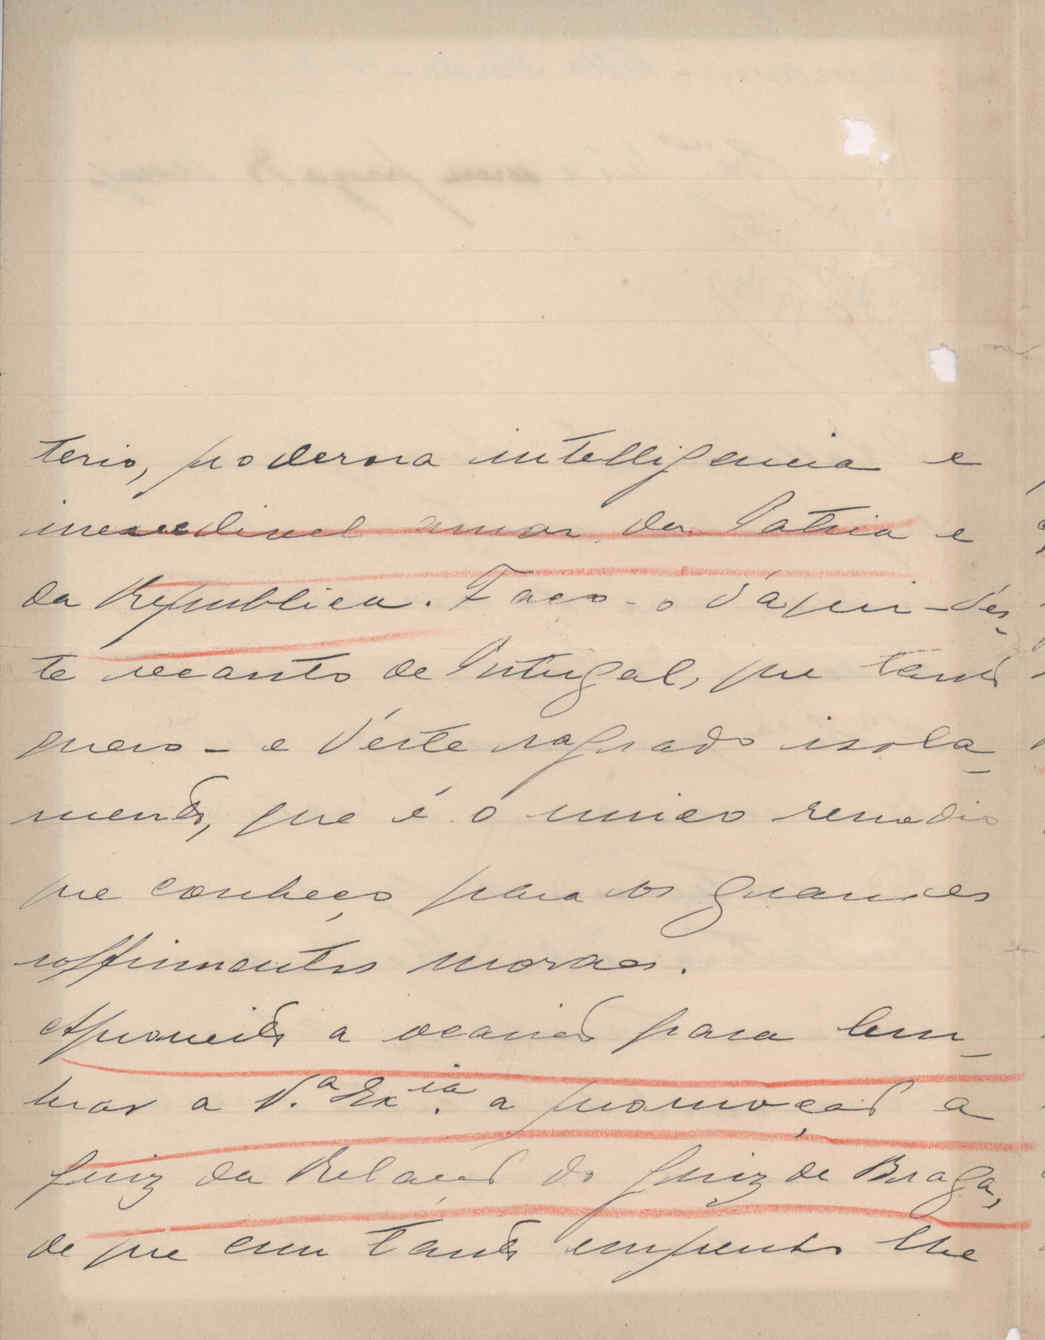 terio, poderosa intelligencia e
inexcedivel amor da Patria e
da Republica. Faço-o d'aqui - d'es-
te recanto de Portugal, que tanto
quero - e d'este sagrado isola-
mento, que é o unico remedio
que conheço para os grandes
soffrimentos moraes.
Aproveito a ocasião para lem-
brar a V.ª Ex.ia a promoção a
Juiz da Relação do Juiz de Braga,
de que com tanto empenho lhe